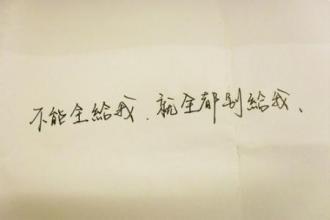 不能全給我、就全都別給我、